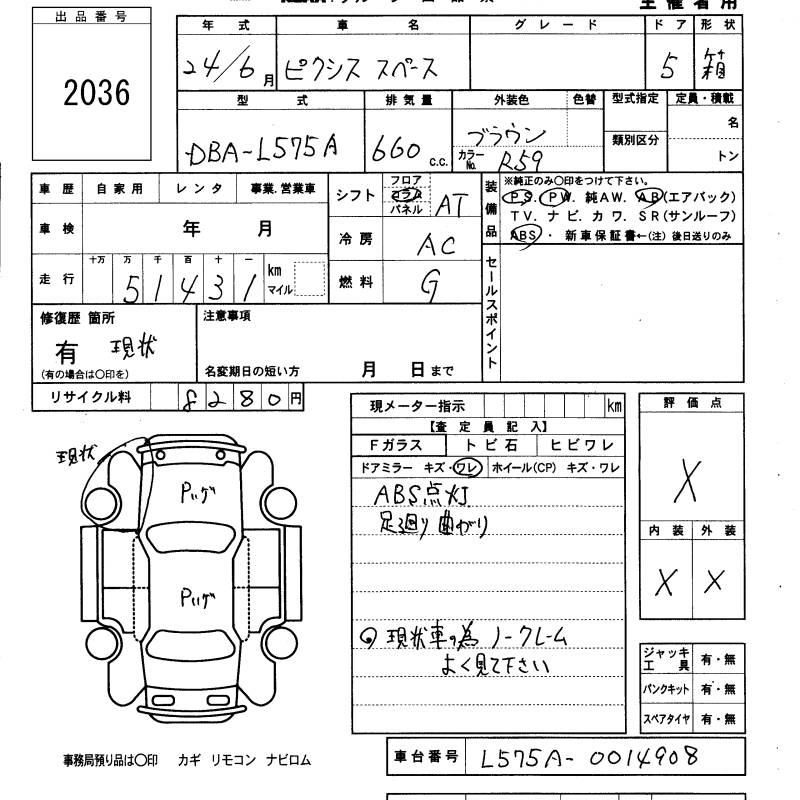 主催者用
出品番号
2036
年式 車名 グレード ドア 形状
24/6月 ピクシス スペース 5 箱
型式 排気量 外装色 色替 型式指定 定員・積載
DBA-L575A 660 c.c. ブラウン 名
カラーNo. R59 類別区分 トン
車歴 自家用 レンタ 事業.営業車
車検 年 月
走行 十万 万 千 百 十 一
51431 km マイル
シフト フロア コラム パネル AT
冷房 AC
燃料 G
装備品
※純正のみ○印をつけて下さい。
PS. PW. 純AW. AB(エアバック)
TV. ナビ. カワ. SR(サンルーフ)
ABS ・ 新車保証書←(注) 後日送りのみ
セールスポイント
修復歴 箇所
有 現状
(有の場合は○印を)
注意事項
名変期日の短い方 月 日まで
リサイクル料 8280円
現メーター指示 km
【査定員記入】
Fガラス トビ石 ヒビワレ
ドアミラー キズ・ワレ ホイール(CP) キズ・ワレ
ABS点灯
足廻り曲がり
◎現状車の為 ノークレーム
よく見て下さい
評価点
X
内装 外装
X X
ジャッキ工具 有・無
パンクキット 有・無
スペアタイヤ 有・無
現状
車台番号 L575A-0014908
事務局預り品は○印 カギ リモコン ナビロム